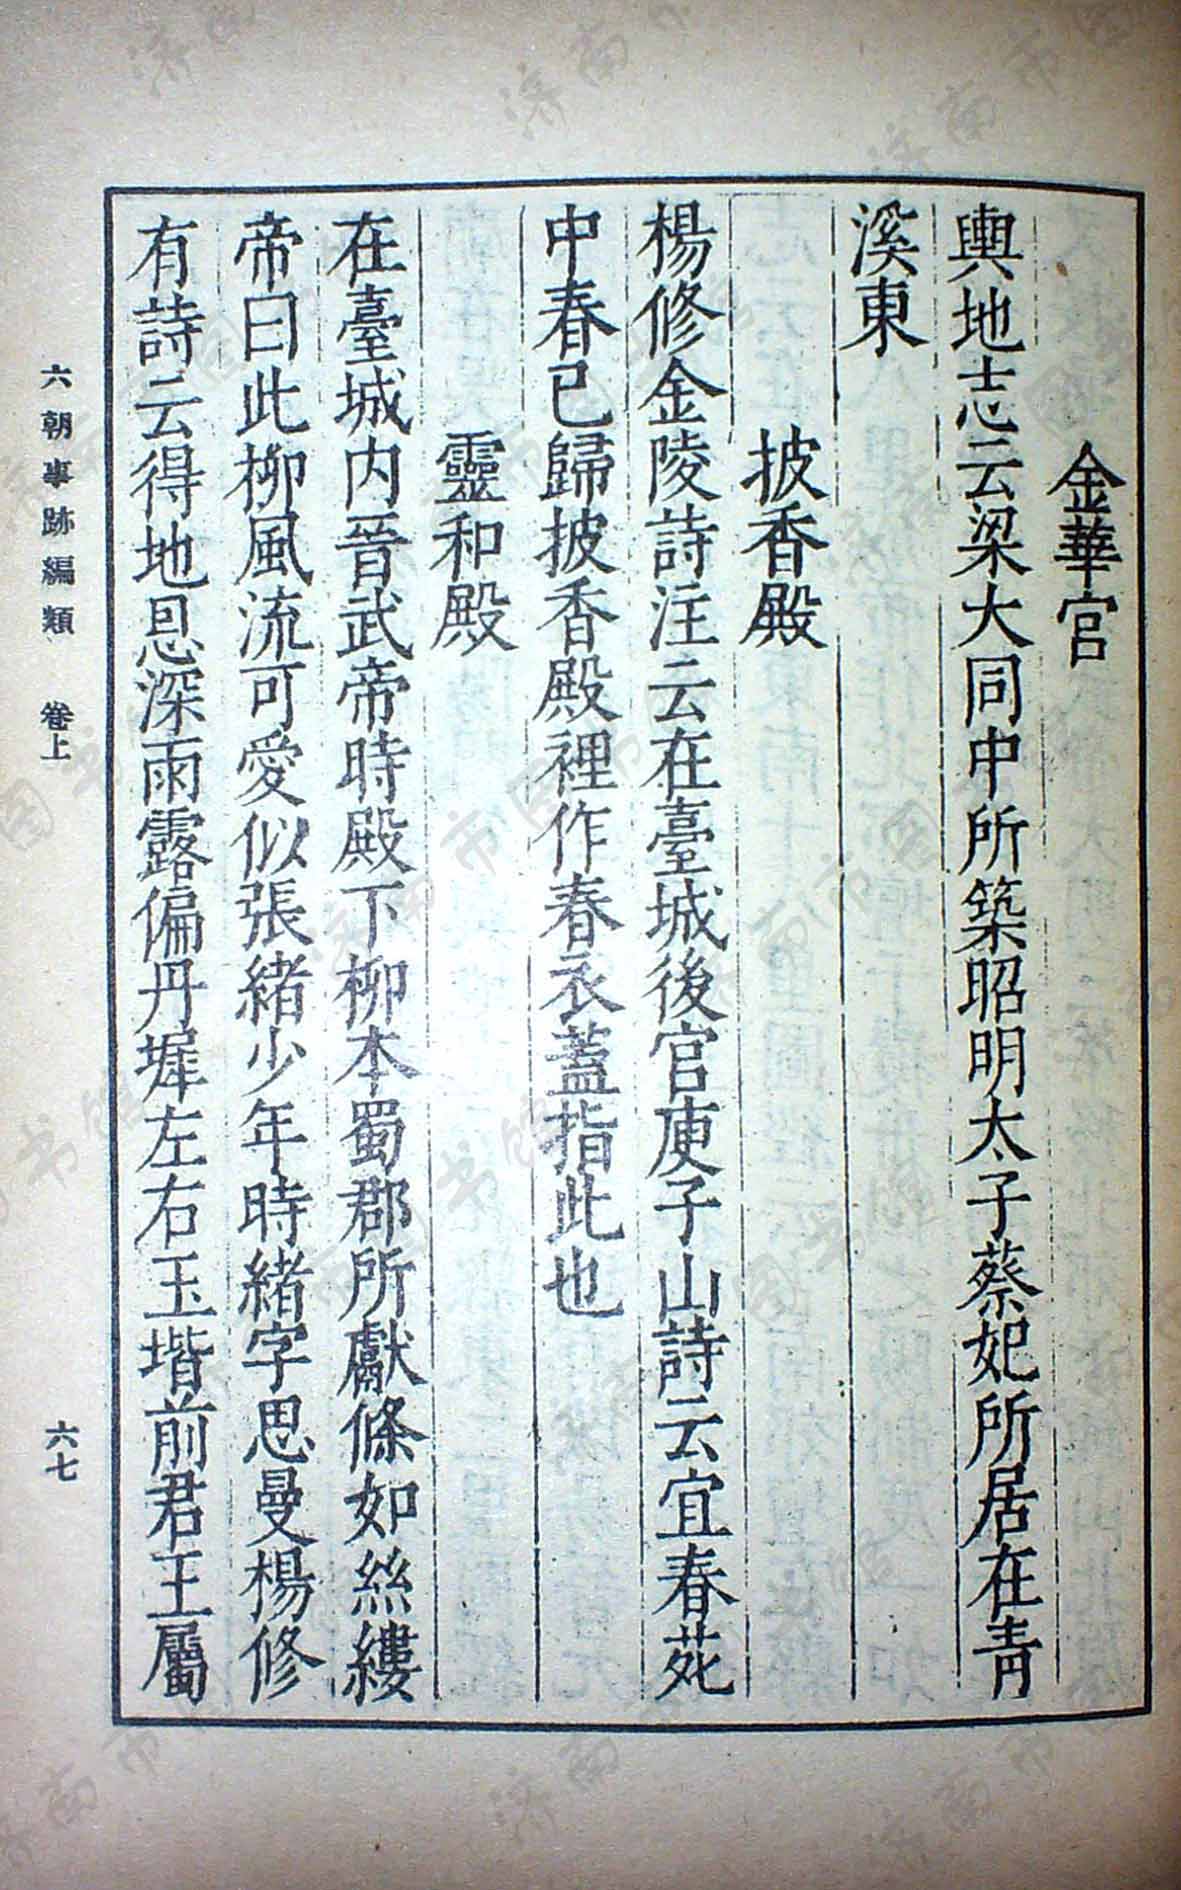 金華宮
輿地志云梁大同中所築昭明太子蔡妃所居在青
溪東
披香殿
楊修金陵詩注云在臺城後宮庾子山詩云宜春苑
中春已歸披香殿裡作春衣蓋指此也
靈和殿
在臺城内晉武帝時殿下柳本蜀郡所獻條如絲縷
帝曰此柳風流可愛似張緒少年時緒字思曼楊修
有詩云得地恩深雨露偏丹墀左右玉堦前君王屬
六朝事跡編類 卷上
六七